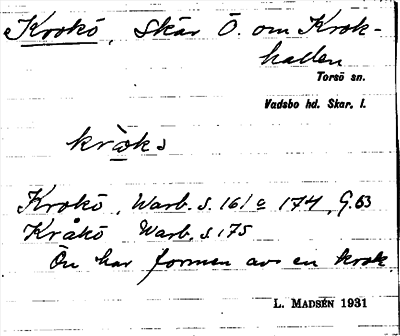 Krokö, Skär Ö. om Krok-
hallen
Torsö sn.
Vadsbo hd. Skar. l.
kròks
Krokö, Warb. s. 161 o 174, G. 63
Kråkö Warb. s 175
Ön har formen av en krok
L. MADSÉN 1931